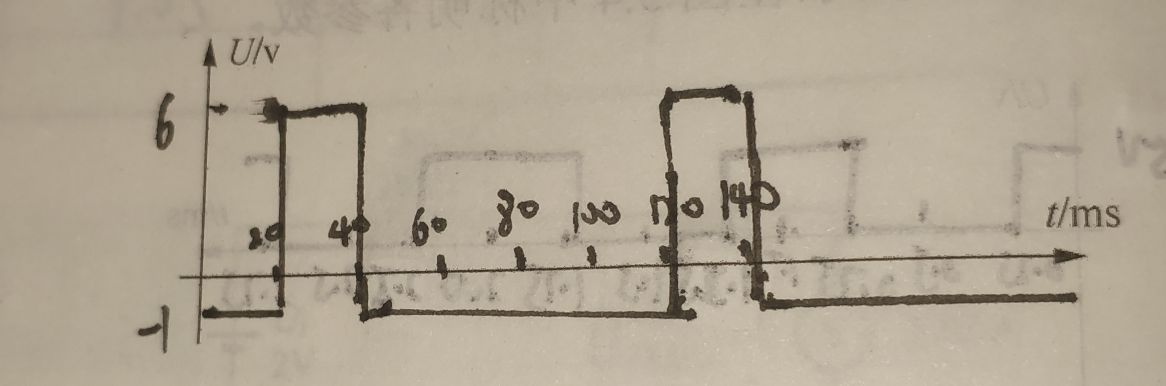 U/v
6
20 40 60 80 100 120 140
t/ms
-1